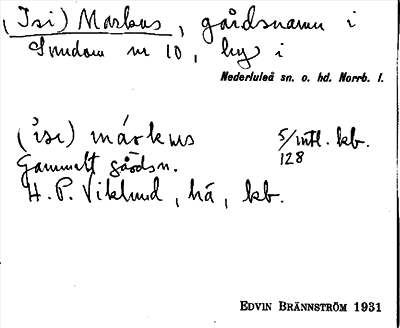 (Isi) Markus, gårdsnamn i
Smedom nr 10, by i
Nederluleå sn. o. hd. Norrb. l.
(ìsi) márkus
5/intl. kb.
128
Gammelt gårdsn.
H. P. Viklund, há, kb.
EDVIN BRÄNNSTRÖM 1931